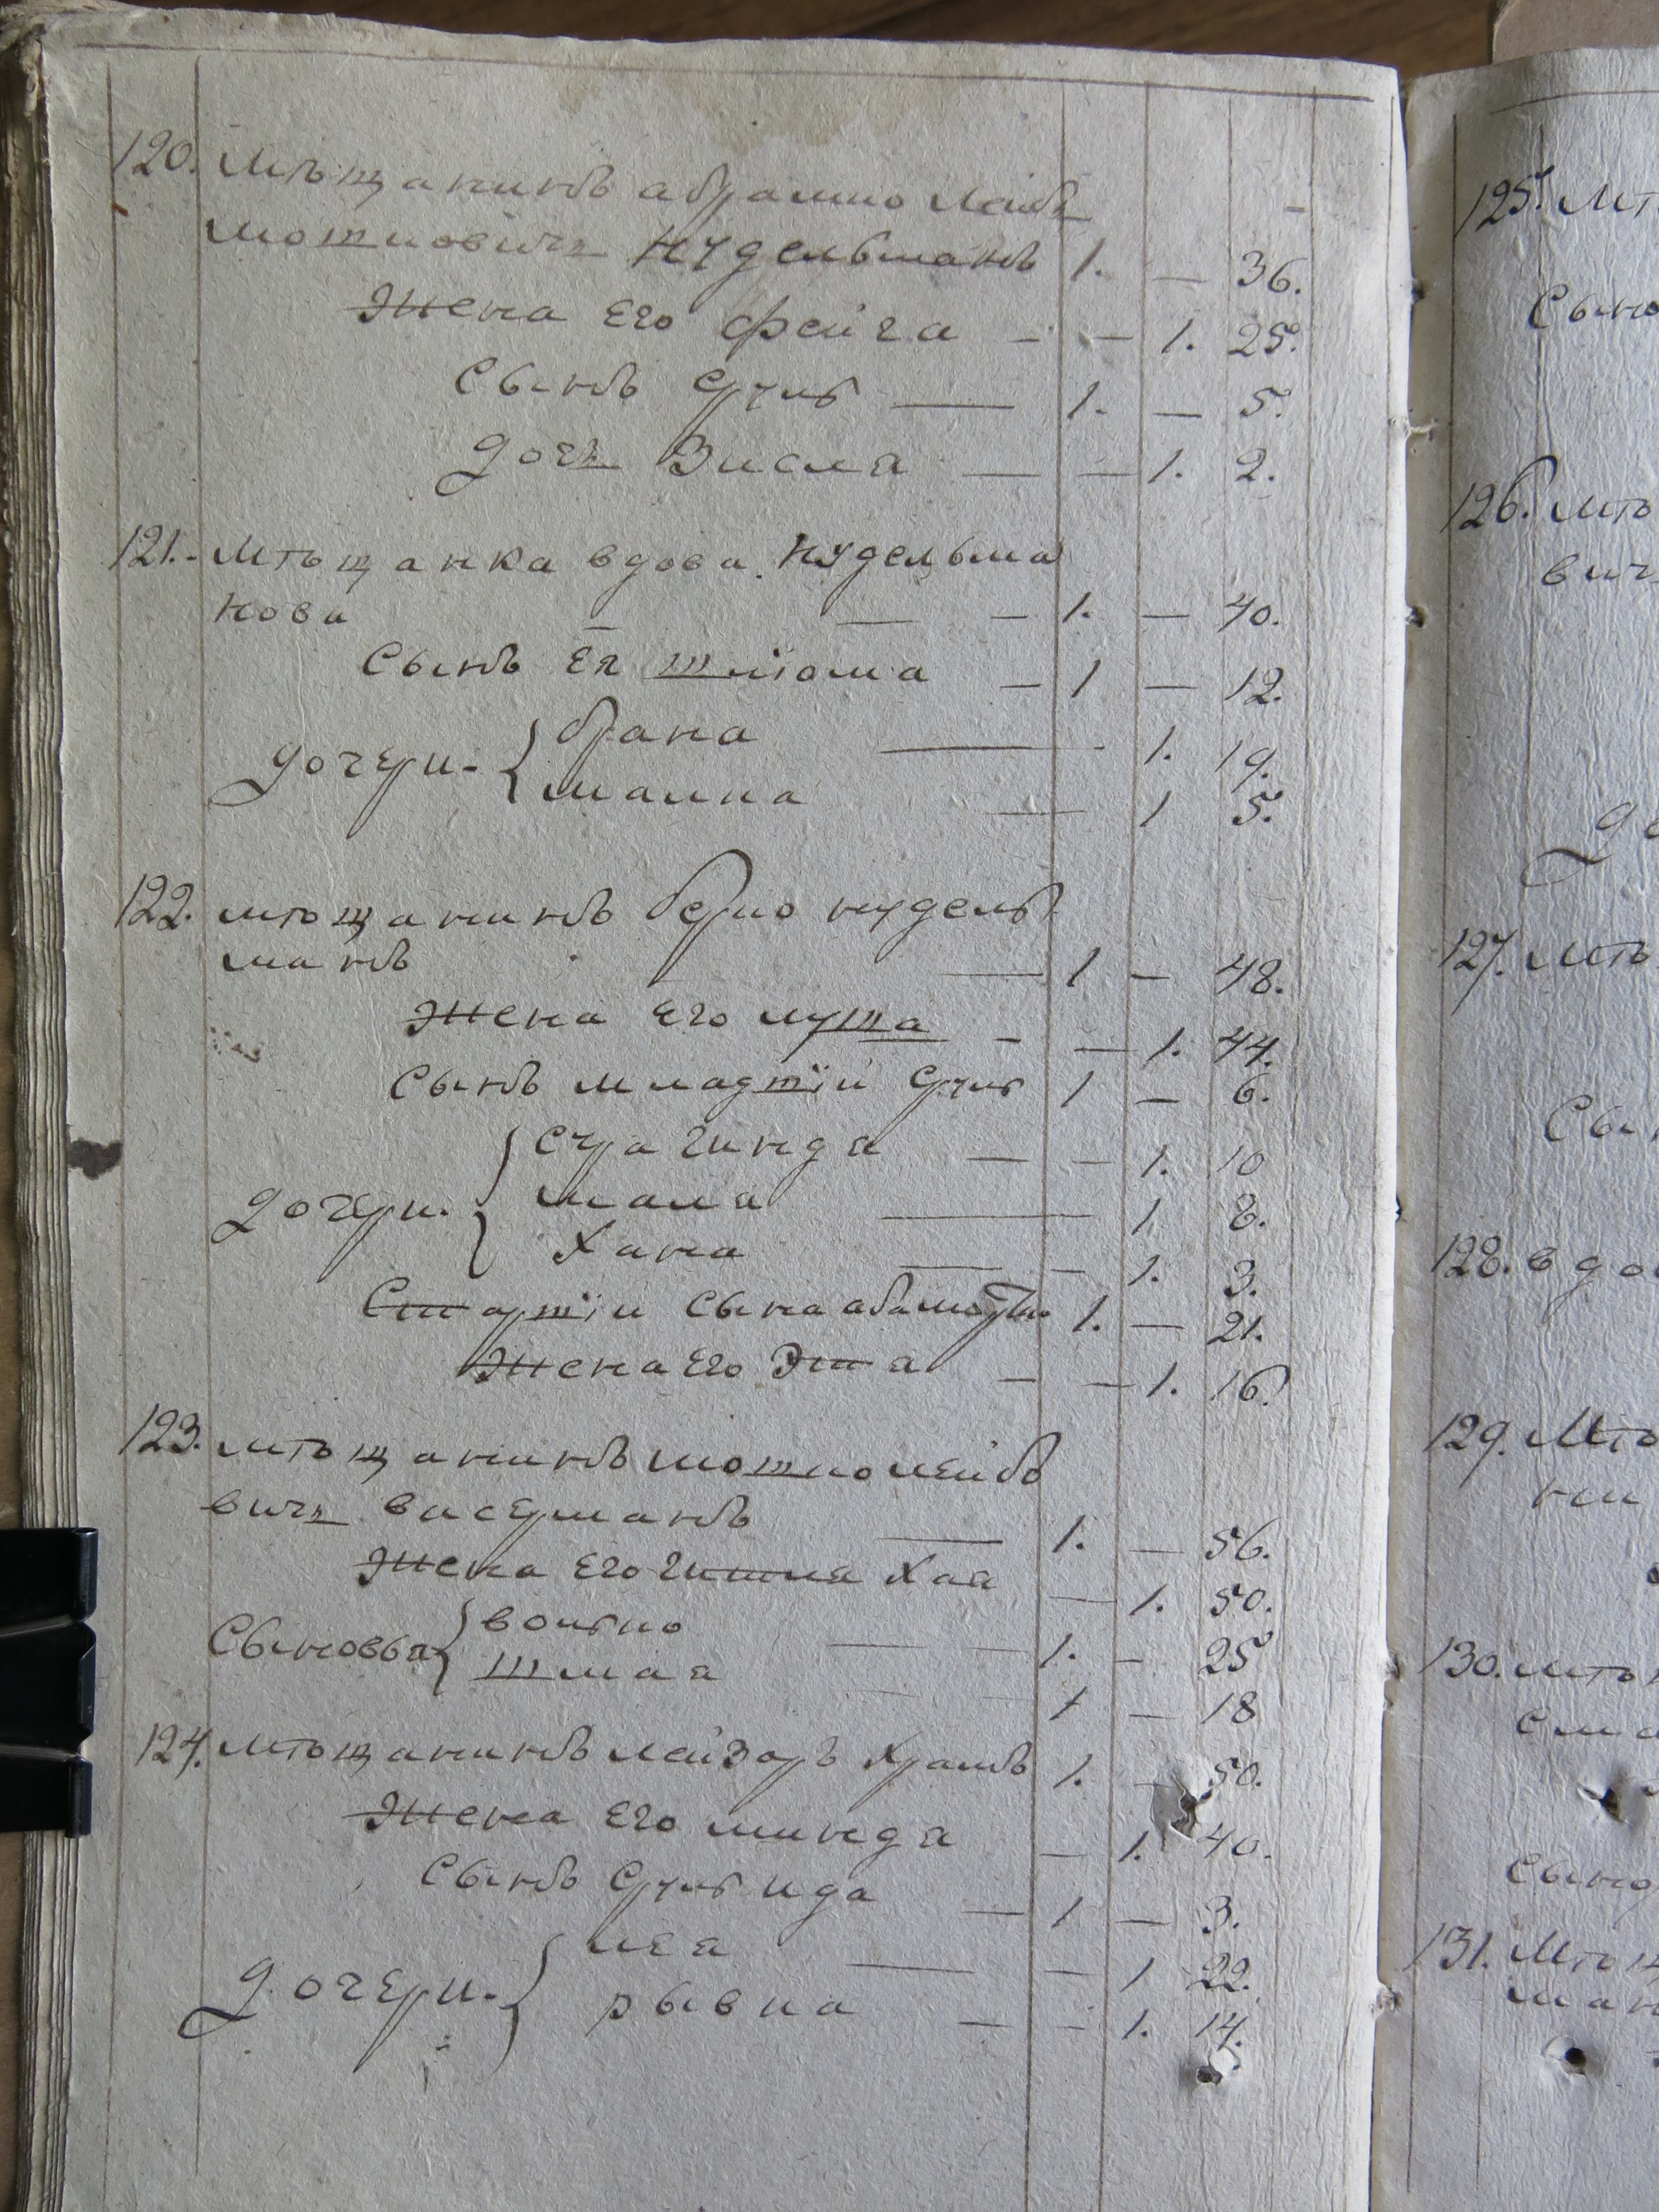 120. Мѣщанинъ абрамко Лейбъ
мошковичъ Нудельманъ 1. — 36.
Жена Его Фейга — — 1. 25.
Сынъ Сруль — 1. — 5.
дочъ Зисля — — 1. 2.
121. Мѣщанка вдова Нудельма
нова — — — 1. — 40.
Сынъ Ея шліома — 1 — 12.
дочери { брана — 1. 19.
малка — 1 5.
122. мѣщанинъ берко нудель
манъ — 1 — 48.
Жена Его луша — — 1. 44.
Сынъ младшій Сруль 1 — 6.
дочери { сура гинда — — 1. 10
маля — 1 8.
Хана — — 1. 3.
Старшій сынъ 1. — 21.
Жена Его Эта — — 1. 16.
123. мѣщанинъ мошко лейбо
вичъ васерманъ — 1. — 56.
Жена Его гитля Хая — 1. 50.
Сыновья { волько — — 1. — 25
шмая — — 1 — 18
124. мѣщанинъ лейзоръ Храмъ 1. — 50.
Жена Его минда — 1. 40.
Сынъ Сруль ида — 1 — 3.
дочери { лея — — 1 22.
рывка — — 1. 14.
125. Мѣ
Сыно
126. мѣ
вичъ
до
127. мѣ
Сы
128. вдо
129. Мѣ
130. мѣ
131. мѣщ
ман